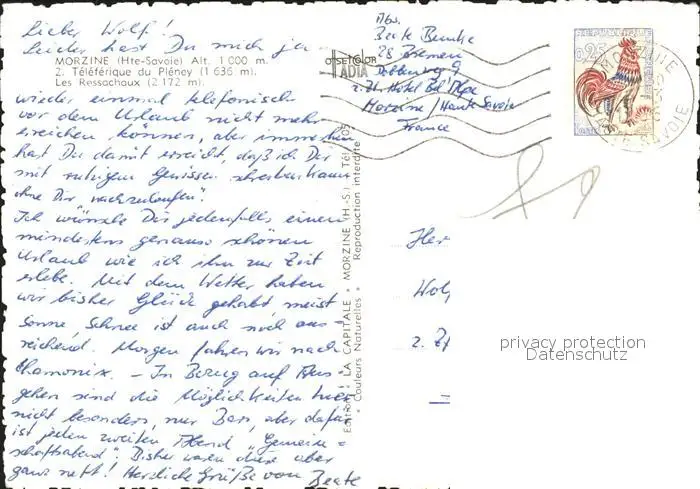 Lieber Wolf!
Leider hast Du mich ja
MORZINE (Hte-Savoie) Alt. 1 000 m.
2. Téléférique du Pléney (1 636 m).
Les Ressachaux (2 172 m).
wieder einmal telefonisch
vor dem Urlaub nicht mehr
erreichen können, aber immerhin
hast Du damit erreicht, daß ich Dir
mit ruhigem Gewissen schreiben kann
ohne Dir "nachzulaufen".
Ich wünsche Dir jedenfalls einen
mindestens genauso schönen
Urlaub wie ich ihn zur Zeit
erlebe. Mit dem Wetter haben
wir bisher Glück gehabt, meist
Sonne, Schnee ist auch noch aus-
reichend. Morgen fahren wir nach
Chamonix. - In Bezug auf Aus-
gehen sind die Möglichkeiten hier
nicht besonders, nur Bars, aber dafür
ist jeden zweiten Abend "Gemein-
schaftsabend". Bisher waren diese aber
ganz nett! Herzliche Grüße von Beate
Édition: LA CAPITALE • MORZINE (H.-S.) Tél. 105
« Couleurs Naturelles » Reproduction interdite
OFFSETCOLOR
IADIA
Abs.
Beate
28 Bremen
z.Zt. Hotel Bel Alpe
Morzine / Haute Savoie
France
REPUBLIQUE
0,25
MORZINE
SAVOIE
Her
Wol
z. Zt
privacy protection
Datenschutz